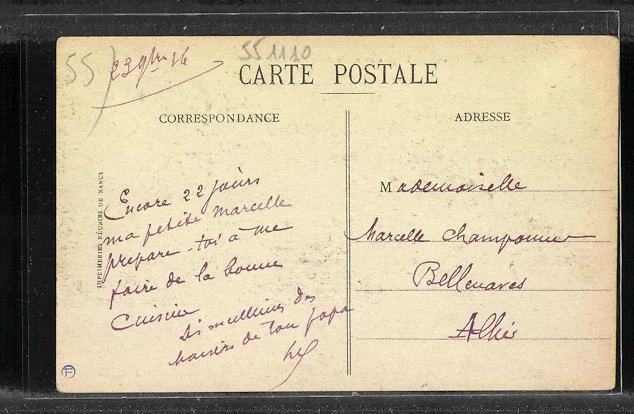 55)
23 9bre 16
551110
CARTE POSTALE
CORRESPONDANCE
ADRESSE
IMPRIMERIES RÉUNIES DE NANCY
Encore 22 jours
ma petite Marcelle
prepare-toi à me
faire de la bonne
cuisine
Dis meilleures des
baisers de ton papa
Mademoiselle
Marcelle
Bellenaves
Allier